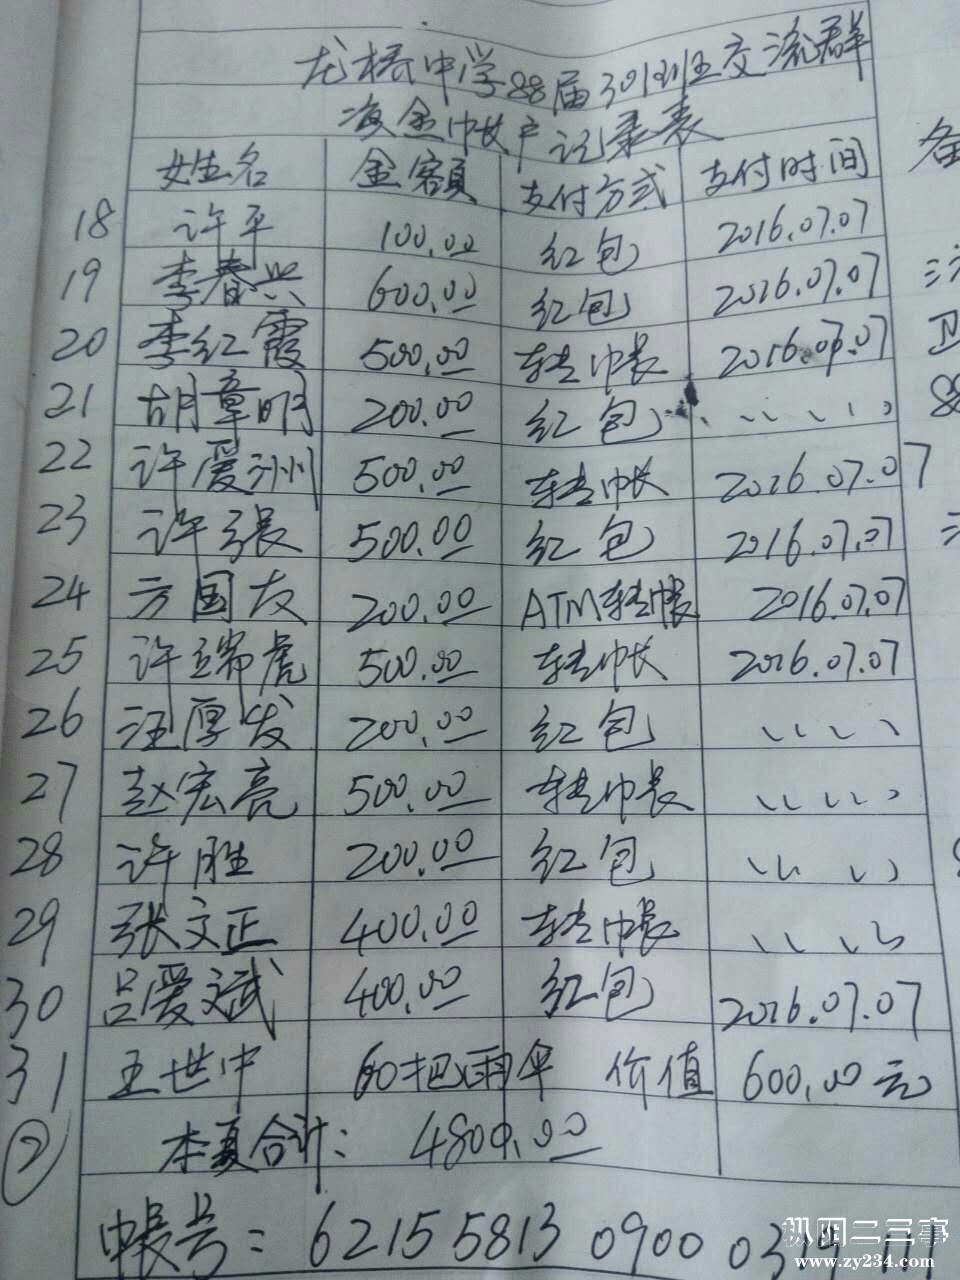 龙桥中学88届301班班交流群
资金帐户记录表
姓名 金额 支付方式 支付时间 备
18 许平 100.00 红包 2016.07.07
19 李春兴 600.00 红包 2016.07.07
20 李红霞 500.00 转帐 2016.07.07
21 胡章明 200.00 红包 、、、、、
22 许爱洲 500.00 转帐 2016.07.07
23 许张 500.00 红包 2016.07.07
24 方国友 200.00 ATM转帐 2016.07.07
25 许瑞虎 500.00 转帐 2016.07.07
26 汪厚发 200.00 红包 、、、、
27 赵宏亮 500.00 转帐 、、、、、
28 许胜 200.00 红包 、、、、
29 张文正 400.00 转帐 、、、、
30 吕爱斌 400.00 红包 2016.07.07
31 王世中 60把雨伞 价值 600.00元
② 本页合计: 4800.00
帐号: 6215 5813 0900 0319
枞阳二三事
www.zy234.com